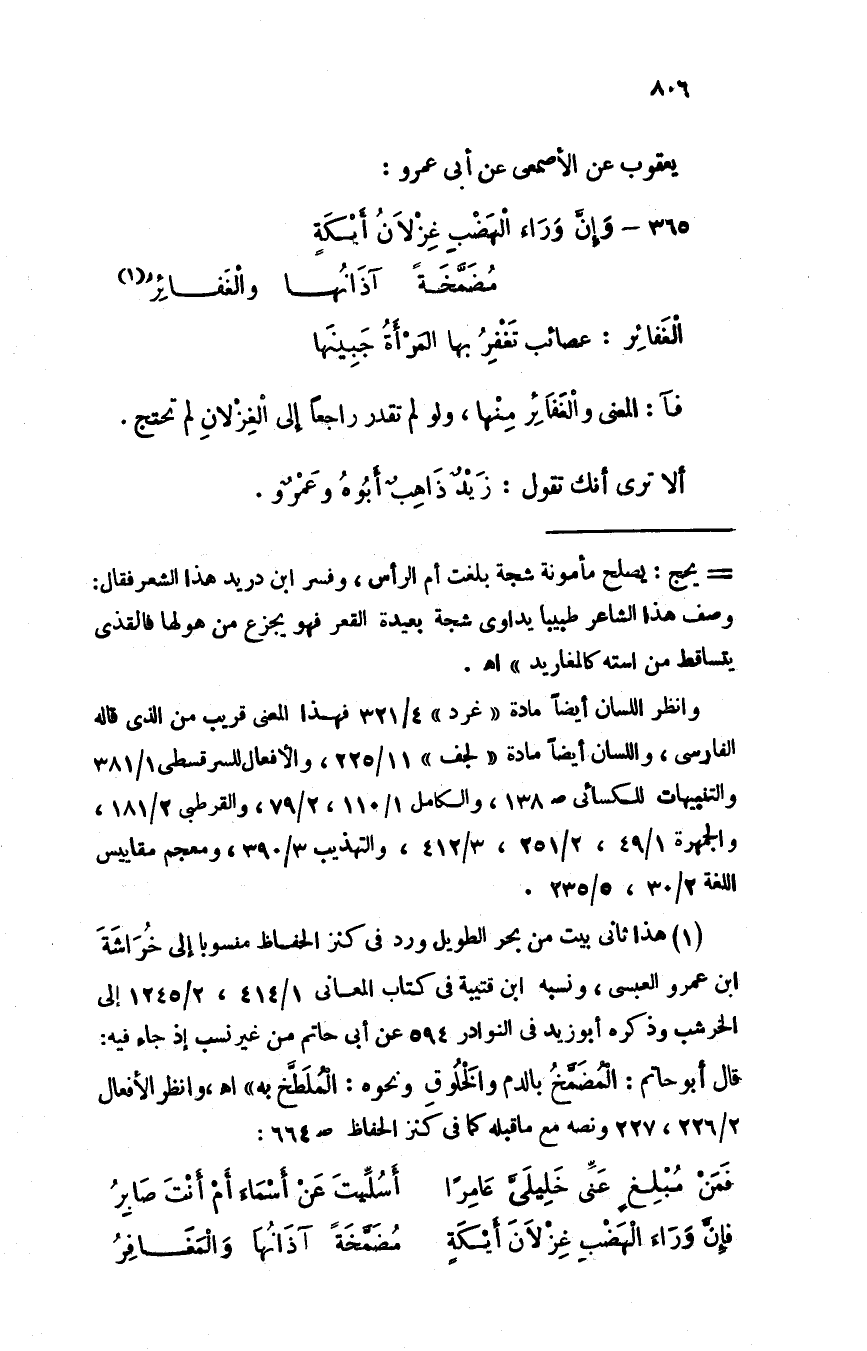 ٨٠٦
يعقوب عن الأصمعى عن أبى عمرو :
٣٦٥ – وَإِنَّ وَرَاء الْهَضْبِ غِزْلاَنُ أَيْكَةٍ
مُضَمَّخَةً آذَانُهَا والْغَفائِرُ(١)
الْغَفائِر : عصائب تَغْفِرُ بها المَرْأَةُ جَبِينَهَا
فآ : المعنى والْغَفَائِرُ مِنْها ، ولو لم تقدر راجعاً إلى الْغِزْلانِ لم تحتج .
ألا ترى أنك تقول : زَيْدٌ ذَاهِبٌ أَبُوهُ وعَمْرٌو .
= يحج : يصلح مأمونة شجة بلغت أم الرأس ، وفسر ابن دريد هذا الشعر فقال:
وصف هذا الشاعر طبيبا يداوى شجة بعيدة القعر فهو يجزع من هولها فالقذى
يتساقط من استه كالمغاريد » اه .
وانظر اللسان أيضاً مادة « غرد » ٣٢١/٤ فهذا المعنى قريب من الذى قاله
الفارسى ، واللسان أيضاً مادة « لجف » ٢٢٥/١١ ، والأفعال للسرقسطى ٣٨١/١
والتنبيهات للكسائى ص ١٣٨ ، والكامل ١١٠/١ ، ٧٩/٢ ، والقرطبى ١٨١/٢ ،
والجمهرة ٤٩/١ ، ٢٥١/٢ ، ٤١٢/٣ ، والتهذيب ٣٩٠/٣ ، ومعجم مقاييس
اللغة ٣٠/٢ ، ٢٣٥/٥ .
(١) هذا ثانى بيت من بحر الطويل ورد فى كنز الحفاظ منسوبا إلى خُرَاشَةَ
ابن عمرو العبسى ، ونسبه ابن قتيبة فى كتاب المعانى ٤١٤/١ ، ١٢٤٥/٢ إلى
الخرشب وذكره أبوزيد فى النوادر ٥٩٤ عن أبى حاتم من غير نسب إذ جاء فيه:
قال أبو حاتم : الْمُضَمَّخُ بالدم والخَلُوقِ ونحوه : الْمُلَطَّخ به» اه ،وانظر الأفعال
٢٢٦/٢ ، ٢٢٧ ونصه مع ماقبله كما فى كنز الحفاظ ص ٦٦٤ :
فَمَنْ مُبْلِغٍ عَنِّى خَلِيلَىَّ عَامِرًا أَسُلِّيتَ عَنْ أَسْمَاءَ أَمْ أَنْتَ صَابِرُ
فإِنَّ وَرَاءَ الْهَضْبِ غِزْلاَنَ أَيْكَةٍ مُضَمَّخَةً آذَانُهَا وَالْمَغَافِرُ